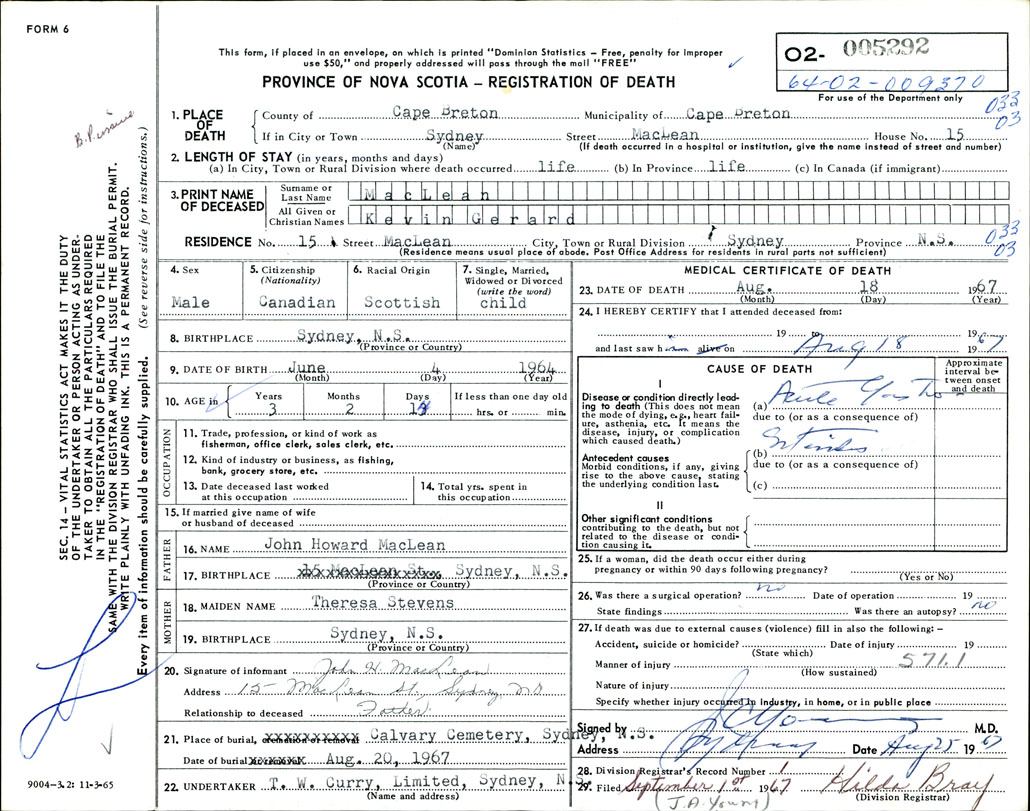 FORM 6
This form, if placed in an envelope, on which is printed "Dominion Statistics – Free, penalty for improper
use $50," and properly addressed will pass through the mail "FREE"
PROVINCE OF NOVA SCOTIA – REGISTRATION OF DEATH
02- 005292
64-02-009370
For use of the Department only
033
03
1. PLACE OF DEATH
County of Cape Breton Municipality of Cape Breton
If in City or Town Sydney Street MacLean House No. 15
(Name) (If death occurred in a hospital or institution, give the name instead of street and number)
2. LENGTH OF STAY (in years, months and days)
(a) In City, Town or Rural Division where death occurred life (b) In Province life (c) In Canada (if immigrant)
3. PRINT NAME OF DECEASED
Surname or Last Name MacLean
All Given or Christian Names Kevin Gerard
RESIDENCE No. 15 Street MacLean City, Town or Rural Division Sydney Province N.S.
(Residence means usual place of abode. Post Office Address for residents in rural parts not sufficient)
033
03
4. Sex
Male
5. Citizenship
(Nationality)
Canadian
6. Racial Origin
Scottish
7. Single, Married,
Widowed or Divorced
(write the word)
child
8. BIRTHPLACE Sydney, N.S.
(Province or Country)
9. DATE OF BIRTH June 4 1964
(Month) (Day) (Year)
10. AGE in
Years Months Days If less than one day old
3 2 14 hrs. or min.
OCCUPATION
11. Trade, profession, or kind of work as
fisherman, office clerk, sales clerk, etc.
12. Kind of industry or business, as fishing,
bank, grocery store, etc.
13. Date deceased last worked
at this occupation
14. Total yrs. spent in
this occupation
15. If married give name of wife
or husband of deceased
FATHER
16. NAME John Howard MacLean
17. BIRTHPLACE 15 MacLean St., Sydney, N.S.
(Province or Country)
MOTHER
18. MAIDEN NAME Theresa Stevens
19. BIRTHPLACE Sydney, N.S.
(Province or Country)
20. Signature of informant John H. MacLean
Address 15 MacLean St., Sydney, NS
Relationship to deceased Father
21. Place of burial, cremation or removal Calvary Cemetery, Sydney, N.S.
Date of burial Aug. 20, 1967
22. UNDERTAKER T. W. Curry, Limited, Sydney, N.S.
(Name and address)
MEDICAL CERTIFICATE OF DEATH
23. DATE OF DEATH Aug. 18 1967
(Month) (Day) (Year)
24. I HEREBY CERTIFY that I attended deceased from:
19 to 19
and last saw him alive on Aug 18 1967
CAUSE OF DEATH
Approximate
interval be-
tween onset
and death
I
Disease or condition directly lead-
ing to death (This does not mean
the mode of dying, e.g., heart fail-
ure, asthenia, etc. It means the
disease, injury, or complication
which caused death.)
(a) Acute Gastro
due to (or as a consequence of)
Antecedent causes
Morbid conditions, if any, giving
rise to the above cause, stating
the underlying condition last.
(b)
due to (or as a consequence of)
(c)
II
Other significant conditions
contributing to the death, but not
related to the disease or condi-
tion causing it.
25. If a woman, did the death occur either during
pregnancy or within 90 days following pregnancy?
(Yes or No)
26. Was there a surgical operation? no Date of operation 19
State findings Was there an autopsy? no
27. If death was due to external causes (violence) fill in also the following: –
Accident, suicide or homicide? Date of injury 19
(State which)
Manner of injury 571.1
(How sustained)
Nature of injury
Specify whether injury occurred in industry, in home, or in public place
Signed by M.D.
Address Date Aug 25 1967
28. Division Registrar's Record Number 1
29. Filed September 1st 1967 Hilda Bray
(J.A. Young) (Division Registrar)
SEC. 14 – VITAL STATISTICS ACT MAKES IT THE DUTY
OF THE UNDERTAKER OR PERSON ACTING AS UNDER-
TAKER TO OBTAIN ALL THE PARTICULARS REQUIRED
IN THE "REGISTRATION OF DEATH" AND TO FILE THE
SAME WITH THE DIVISION REGISTRAR WHO SHALL ISSUE THE BURIAL PERMIT.
WRITE PLAINLY WITH UNFADING INK. THIS IS A PERMANENT RECORD.
Every item of information should be carefully supplied. (See reverse side for instructions.)
9004-3.2: 11-3-65